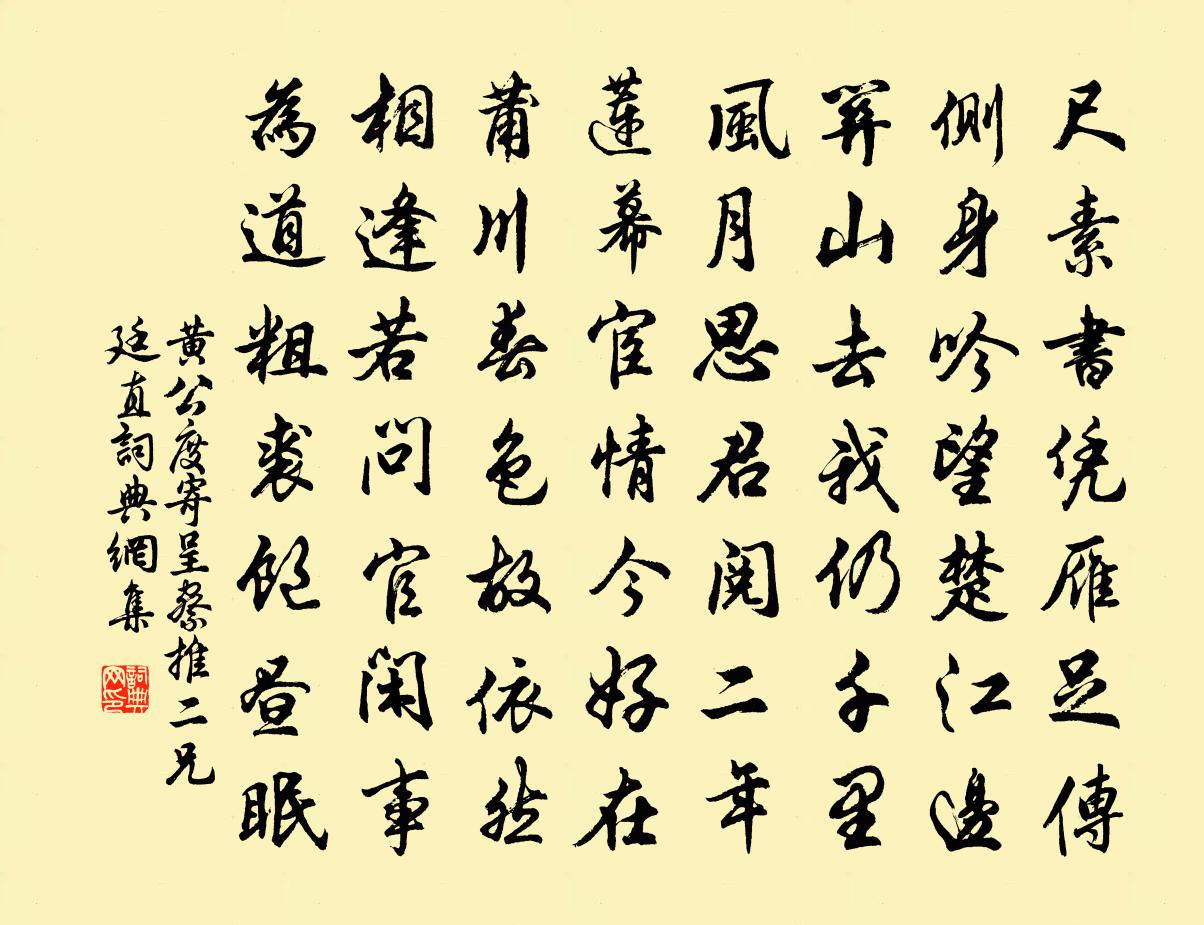 尺素書凭雁足傳
側身吟望楚江邊
關山去我仍千里
風月思君閱二年
蓮幕宦情今好在
莆川春色故依然
相逢若問官閑事
為道粗裘飽晝眠
黃公度寄呈蔡推二兄
廷直詞典網集
詞典
网印